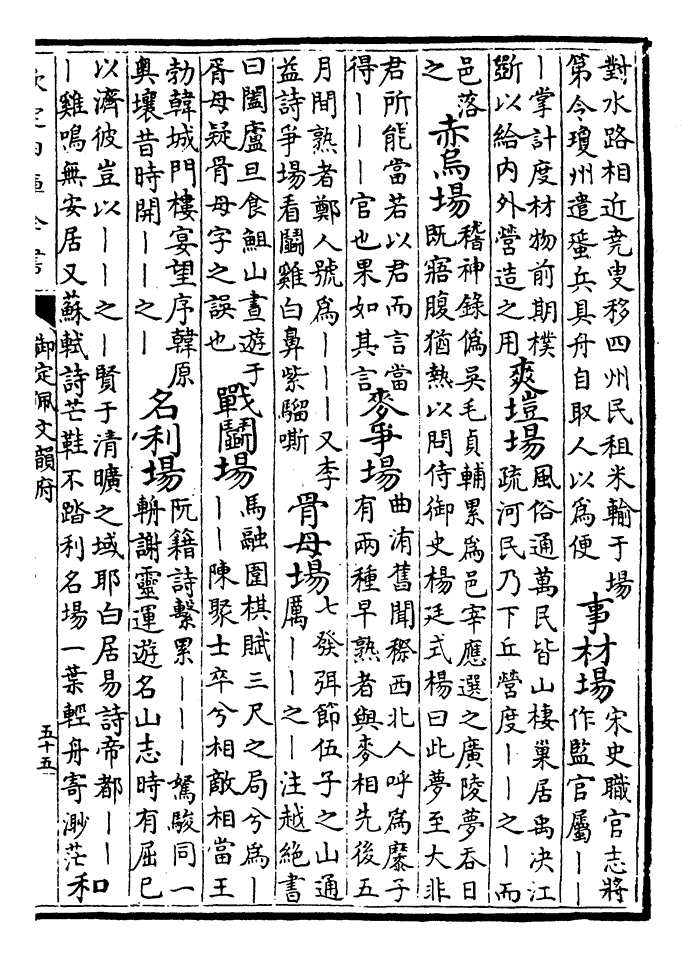 對水路相近堯叟移四州民租米輸于場
第令瓊州遣蜑兵具舟自取人以為便
事材場
宋史職官志將
作監官屬｜｜
｜掌計度材物前期樸
斲以給内外營造之用
爽塏場
風俗通萬民皆山棲巢居禹决江
疏河民乃下丘營度｜｜之｜而
邑落
之
赤烏場
稽神錄偽吳毛貞輔累為邑宰應選之廣陵夢吞日
既寤腹猶熱以問侍御史楊廷式楊曰此夢至大非
君所能當若以君而言當
得｜｜｜官也果如其言
麥爭場
曲洧舊聞穄西北人呼為穈子
有兩種早熟者與麥相先後五
月間熟者鄭人號為｜｜｜又李
益詩爭場看鬬雞白鼻紫騮嘶
骨母場
七發弭節伍子之山通
厲｜｜之｜注越絶書
曰闔廬旦食䱉山晝遊于
胥母疑骨母字之誤也
戰鬬場
馬融圍棋賦三尺之局兮為｜
｜｜陳聚士卒兮相敵相當王
勃韓城門樓宴望序韓原
奥壤昔時開｜｜之｜
名利場
阮籍詩繫累｜｜｜駑駿同一
輈謝靈運遊名山志時有屈已
以濟彼豈以｜｜之｜賢于清曠之域耶白居易詩帝都｜｜
｜雞鳴無安居又蘇軾詩芒鞋不踏利名場一葉輕舟寄渺茫
和
欽定四庫全書
御定佩文韻府
五十五